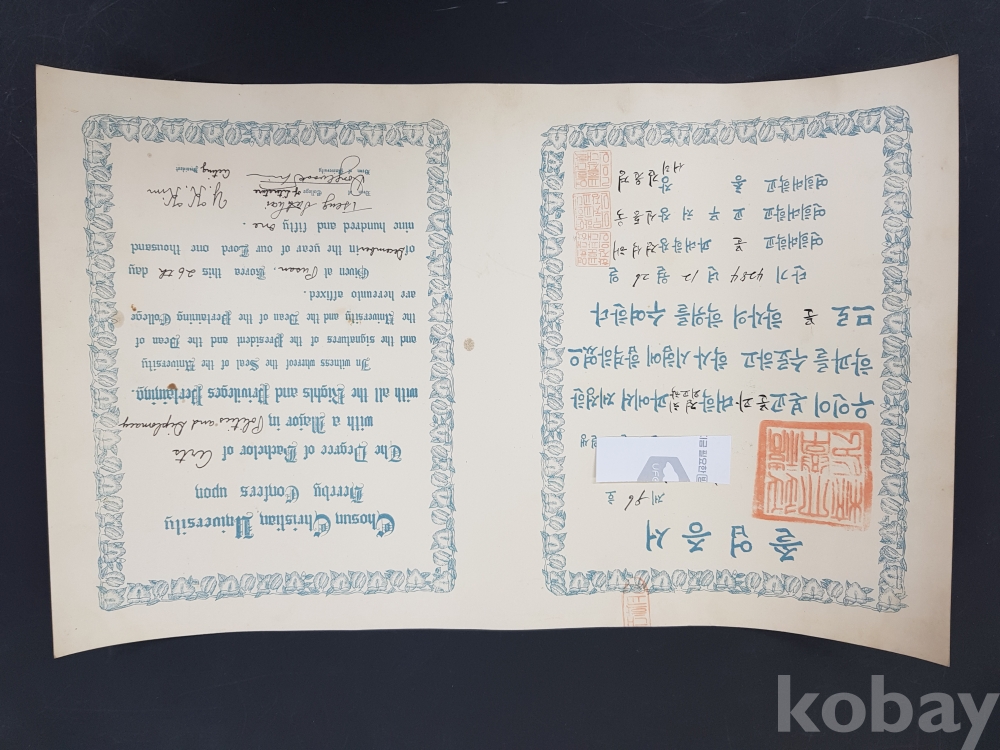 졸업증서
제 86 호
우인이 본교 문과대학 정치외교학과에서 제정한
학과를 수료하고 학사 시험에 합격하였으
므로 문 학사의 학위를 수여한다
단기 4284 년 12 월 26 일
연희대학교 문과대학장
연희대학교 교무처장
연희대학교 총장
Chosun Christian University
Hereby Confers upon
The Degree of Bachelor of Arts
with a Major in Politics and Diplomacy
with all the Rights and Privileges Pertaining.
In witness whereof the Seal of the University
and the signatures of the President and the Dean of
the University and the Dean of the Pertaining College
are hereunto affixed.
Given at Pusan, Korea this 26th day
of December in the year of our Lord one thousand
nine hundred and fifty one.
Y. H. Kim
Acting President
kobay